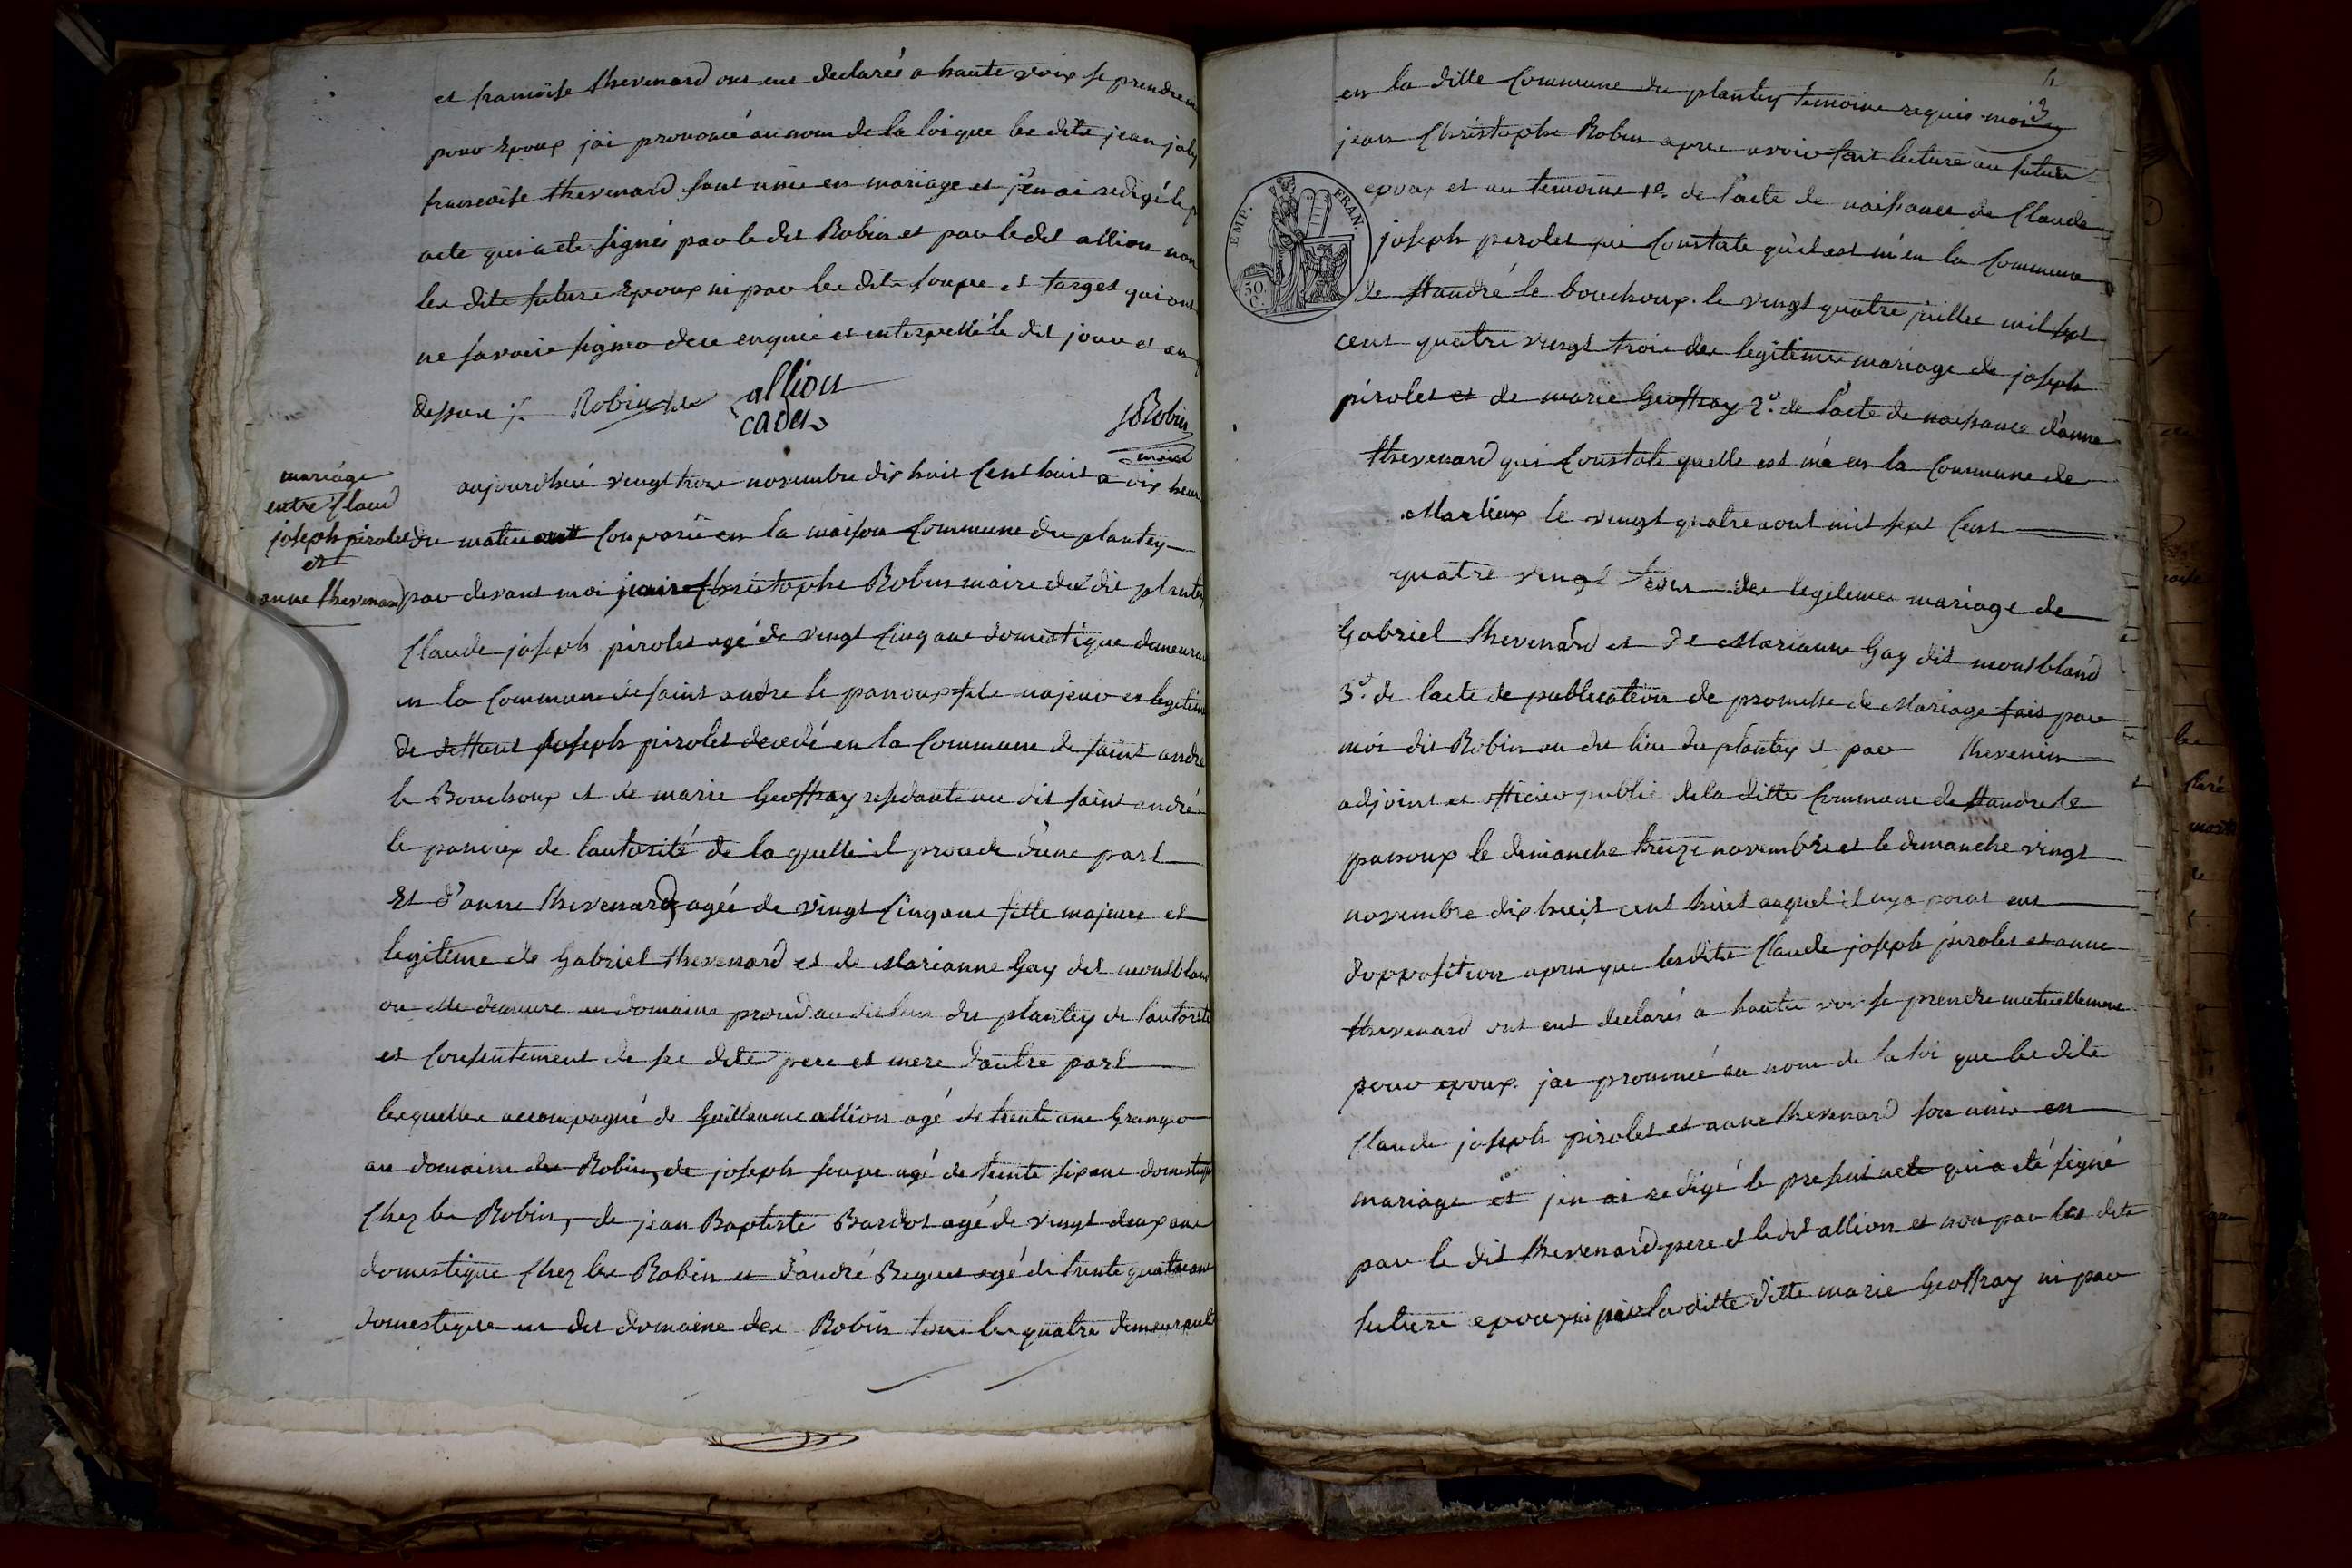 et francoise thevenard ont eus declarés a haute voix se prendre
pour Epoux jai prononcé au nom de la loi que les dits jean joly
francoise thevenard sont unie en mariage et j'en ai redigé le
acte qui a eté signés par le dit Robin et par le dit allion non
les dits future Epoux ni par les dits soupe et target qui ont
ne savoir signer de ce enquis et interpellé le dit jour et an
dessus ·/· Robin allion
cadet JCRobin
maire
mariage
entre Claud
joseph pirolet
et
anne thevenard
aujourdhui vingt trois novembre dix huit Cent huit a dix heure
du matin Comparu en la maison Commune du plantey
par devant moi jean Christophe Robin maire du dit plantey
Claude joseph pirolet agé de vingt Cinq ans domestique demeurant
en la Commune de saint andre le panoux fils majeur et legitime
de deffunt joseph pirolet decedé en la Commune de saint andré
le Bouchoux et de marie Geoffray residante au dit saint andré
le panoux de l'autorité de laquelle il procede d'une part
Et d'anne thevenard agée de vingt Cinq ans fille majeure et
legitime de Gabriel thevenard et de Marianne Gay dit montbland
ou elle demeure en domaine proud au dit lieu du plantey de l'autorité
et Consentement de ses dits pere et mere d'autre part
lesquelles accompagné de Guillaume allion agé de trente ans Granger
au domaine des Robin, de joseph soupe agé de trente six ans domestique
Chez les Robin, de jean Baptiste Bardot agé de vingt deux ans
domestique Chez les Robin et d'andré Beguet agé de trente quatre ans
domestique en du domaine des Robin tous les quatre demeurant
4
en la ditte Commune du plantey temoins requis moi
jean Christophe Robin apres avoir fait lecture au future
EMP. FRAN.
50 C.
epoux et au temoins 1º. de l'acte de naissance de Claude
joseph perolet qui Constate qu'il est né en la Commune
de St andré le bouchoux le vingt quatre juillet mil sept
cent quatre vingt trois du legitime mariage de joseph
pirolet et de marie Geoffray 2º. de l'acte de naissance d'anne
thevenard qui Constate quelle est né en la Commune de
Marlieux le vingt quatre aout mil sept Cent
quatre vingt trois du legitime mariage de
Gabriel thevenard et de Marianne Gay dit montbland
3º. de l'acte de publication de promesse de Mariage fait par
moi dit Robin au dit lieu du plantey et par thevenin
adjoint et officier public de la ditte Commune de St andre le
panoux le dimanche treize novembre et le dimanche vingt
novembre dix huit cent huit auquel il n'y a point eut
d'opposition apres que les dits Claude joseph pirolet et anne
thevenard ont eut declarés a haute voix se prendre mutuellement
pour epoux. jai prononcé au nom de la loi que les dits
Claude joseph pirolet et anne thevenard son unie en
mariage et jen ai redigé le present acte qui a eté signé
par le dit thevenard pere et le dit allion et non par les dits
future epoux ni par la ditte ditte marie Geoffray ni par